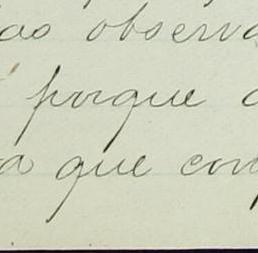 as observa
porque a
a que com